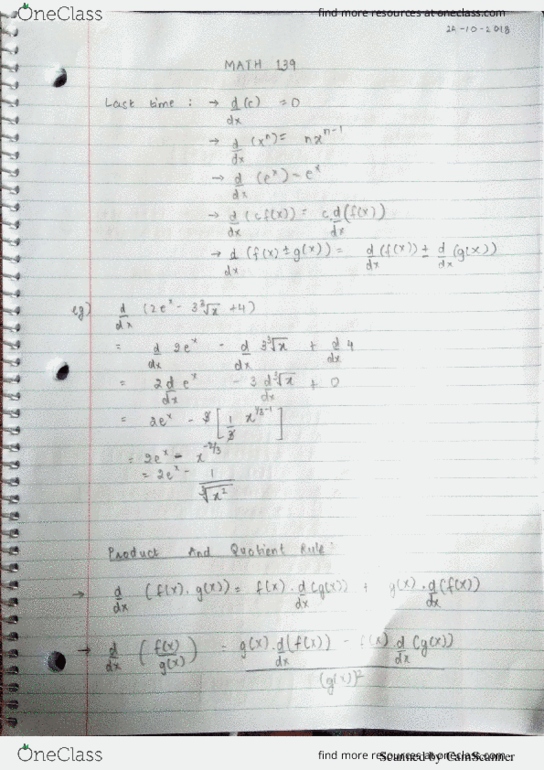 OneClass
find more resources at oneclass.com
24-10-2018
MATH 139
Last time : → d/dx (c) = 0
→ d/dx (xⁿ) = nxⁿ⁻¹
→ d/dx (eˣ) = eˣ
→ d/dx (cf(x)) = c d/dx (f(x))
→ d/dx (f(x) ± g(x)) = d/dx (f(x)) ± d/dx (g(x))
eg) d/dx (2eˣ - 3∛x + 4)
= d/dx 2eˣ - d/dx 3∛x + d/dx 4
= 2 d/dx eˣ - 3 d/dx ∛x + 0
= 2eˣ - 3 [ 1/3 x^(1/3-1) ]
= 2eˣ - x^(-2/3)
= 2eˣ - 1/∛x²
Product And Quotient Rule :
→ d/dx (f(x) . g(x)) = f(x) . d/dx (g(x)) + g(x) . d/dx (f(x))
→ d/dx (f(x)/g(x)) = g(x) . d/dx (f(x)) - f(x) d/dx (g(x)) / (g(x))²
OneClass
find more resources at oneclass.com
Scanned by CamScanner